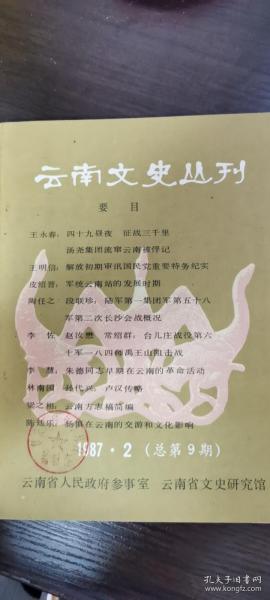 云南文史丛刊
要 目
王永春：四十九昼夜 征战三千里
汤尧集团流窜云南被俘记
王明信：解放初期审讯国民党重要特务纪实
皮绍晋：军统云南站的发展时期
陶任之：段联珍：陆军第一集团军第五十八
军第二次长沙会战概况
李 佐 赵汝懋 常绍群：台儿庄战役第六
十军一八四师禹王山阻击战
李 慧：朱德同志早期在云南的革命活动
林南园 孙代兴：卢汉传略
梁之相：云南方志稿简编
陈廷乐：杨慎在云南的交游和文化影响
1987·2（总第9期）
云南省人民政府参事室 云南省文史研究馆
孔夫子旧书网